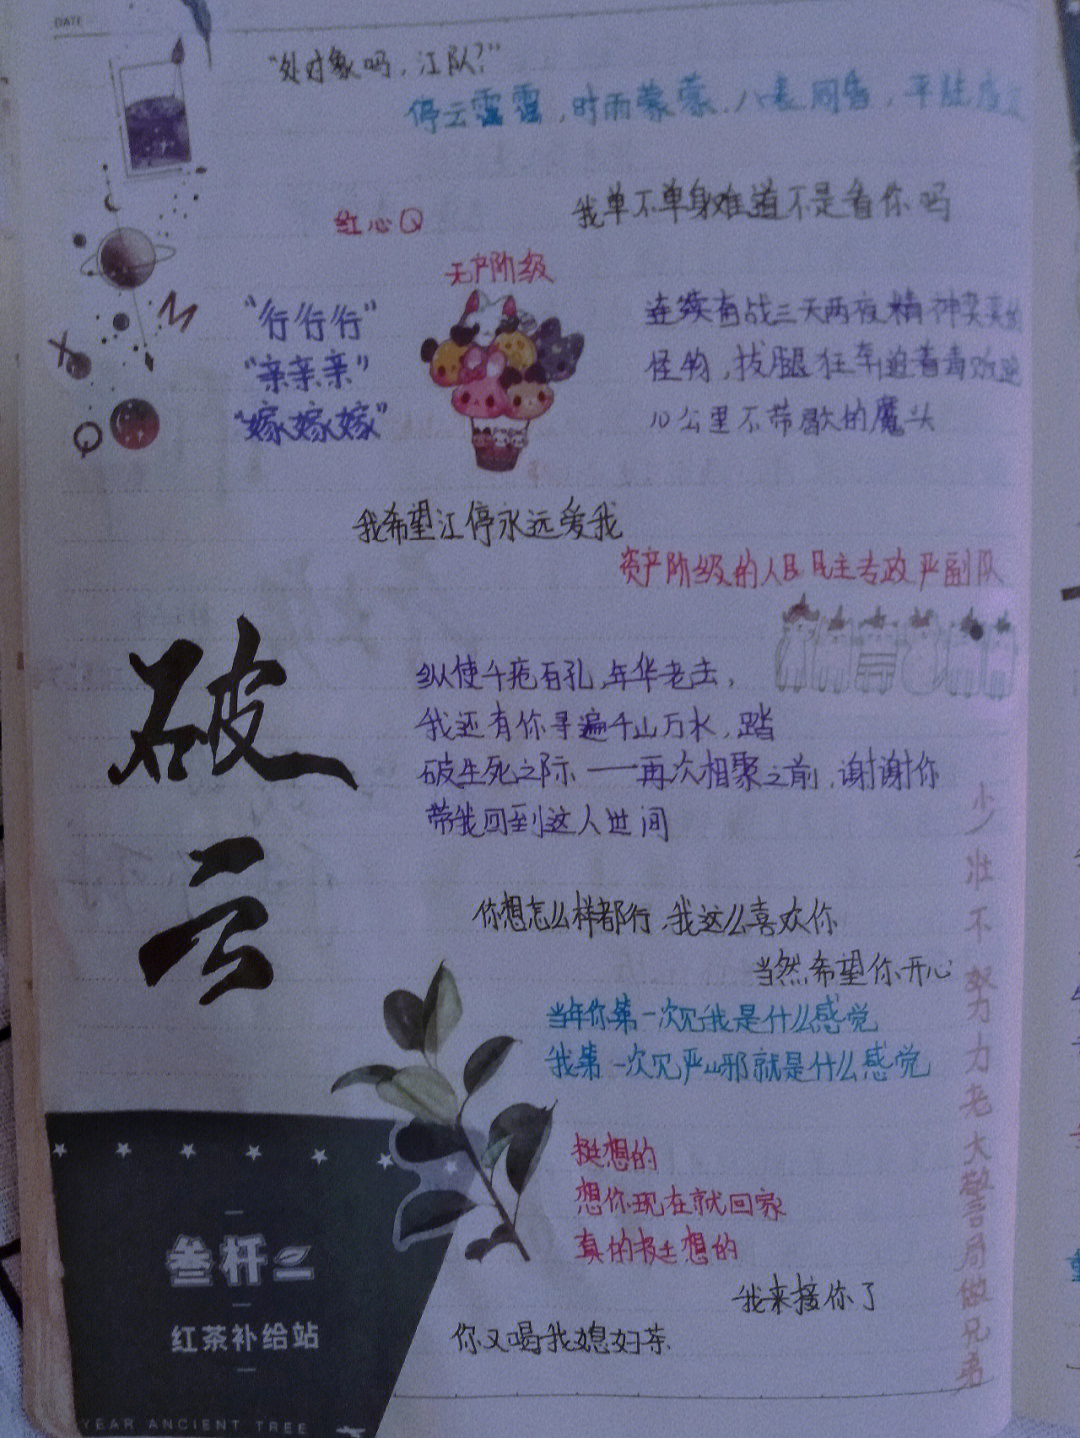 DATE
"处对象吗，江队？"
停云霭霭，时雨蒙蒙，八表同昏，平陆成
我单不单身难道不是看你吗
红心Q
无产阶级
"行行行"
"亲亲亲"
"嫁嫁嫁"
连续奋战三天两夜精神奕奕的
怪物，拔腿狂奔追着毒贩
10公里不带歇的魔头
M
X
Q
我希望江停永远爱我
资产阶级的人民民主专政严副队
破云
纵使千疮百孔，年华老去，
我还有你寻遍千山万水，踏
破生死之际——再次相聚之前，谢谢你
带我回到这人世间
你想怎么样都行，我这么喜欢你
当然希望你开心
当年你第一次见我是什么感觉
我第一次见严峫就是什么感觉
挺想的
想你现在就回家
真的挺想的
我来接你了
你又喝我媳妇茶
少壮不努力老大警局做兄弟
叁杆
红茶补给站
YEAR ANCIENT TREE